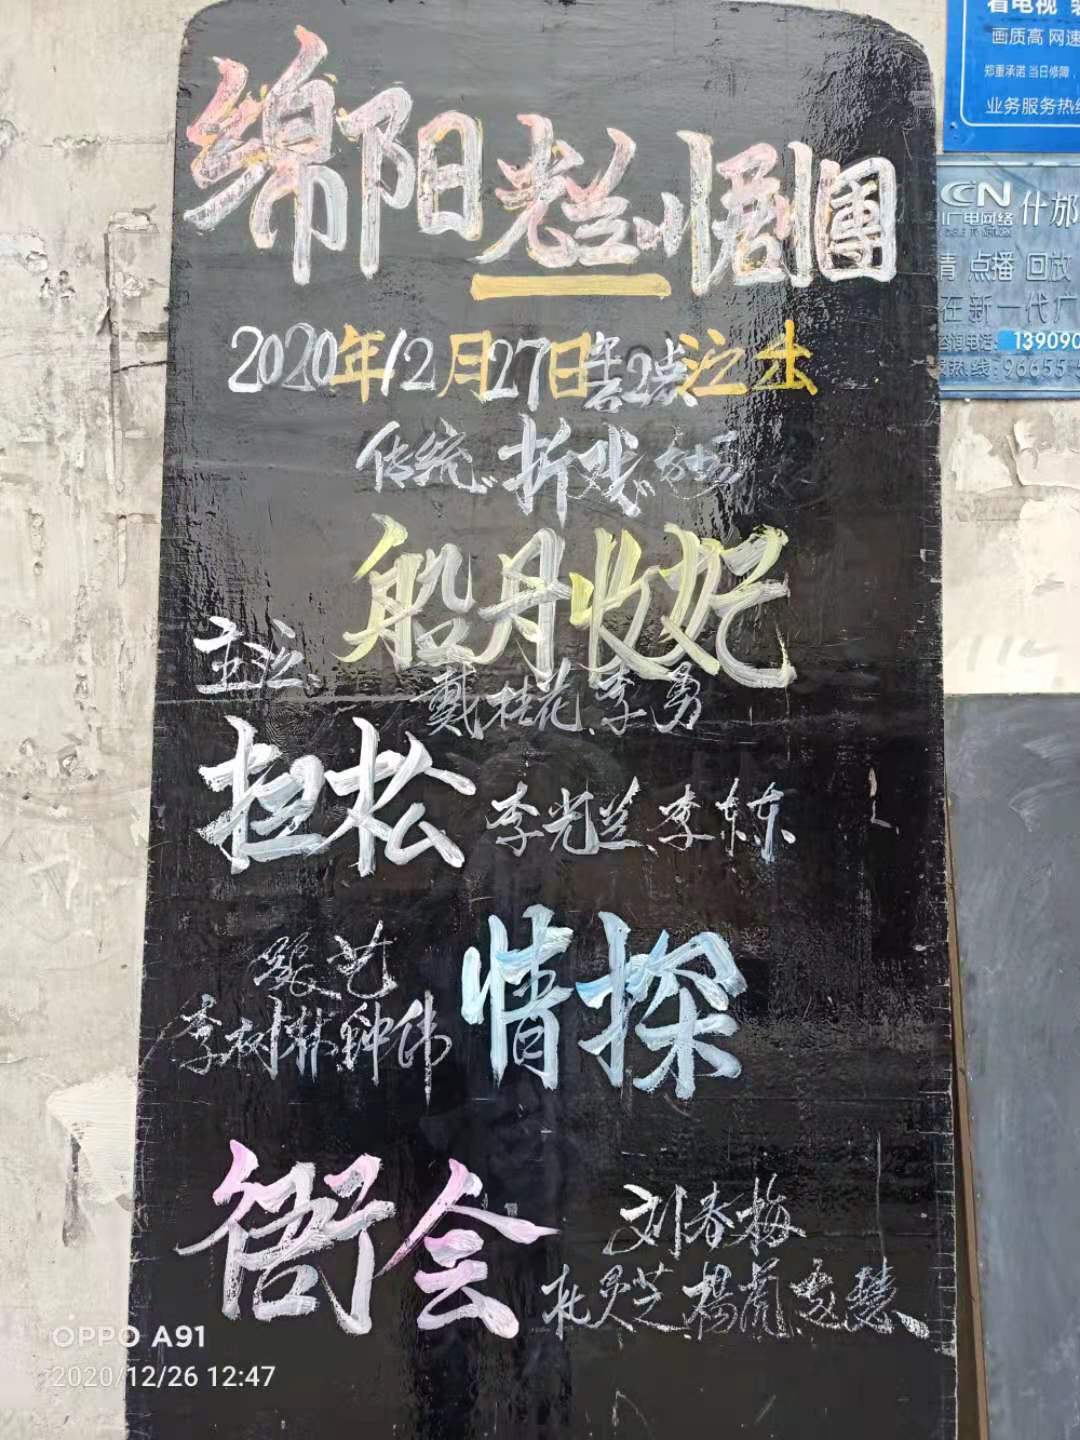 绵阳光兰川剧團
2020年12月27日午后2点演出
传统"折戏"
船月收妃
主演:
戴桂花、李勇
扭松 李光兰、李东东
张艺
李树林 钟伟
情探
衙会
刘春梅
杜灵芝 杨
看电视
画质高 网速
郑重承诺 当日修障
业务服务热线
CN
广电网络
什邡
点播 回放
在新一代广
咨询电话: 139090
热线: 96655
OPPO A91
2020/12/26 12:47